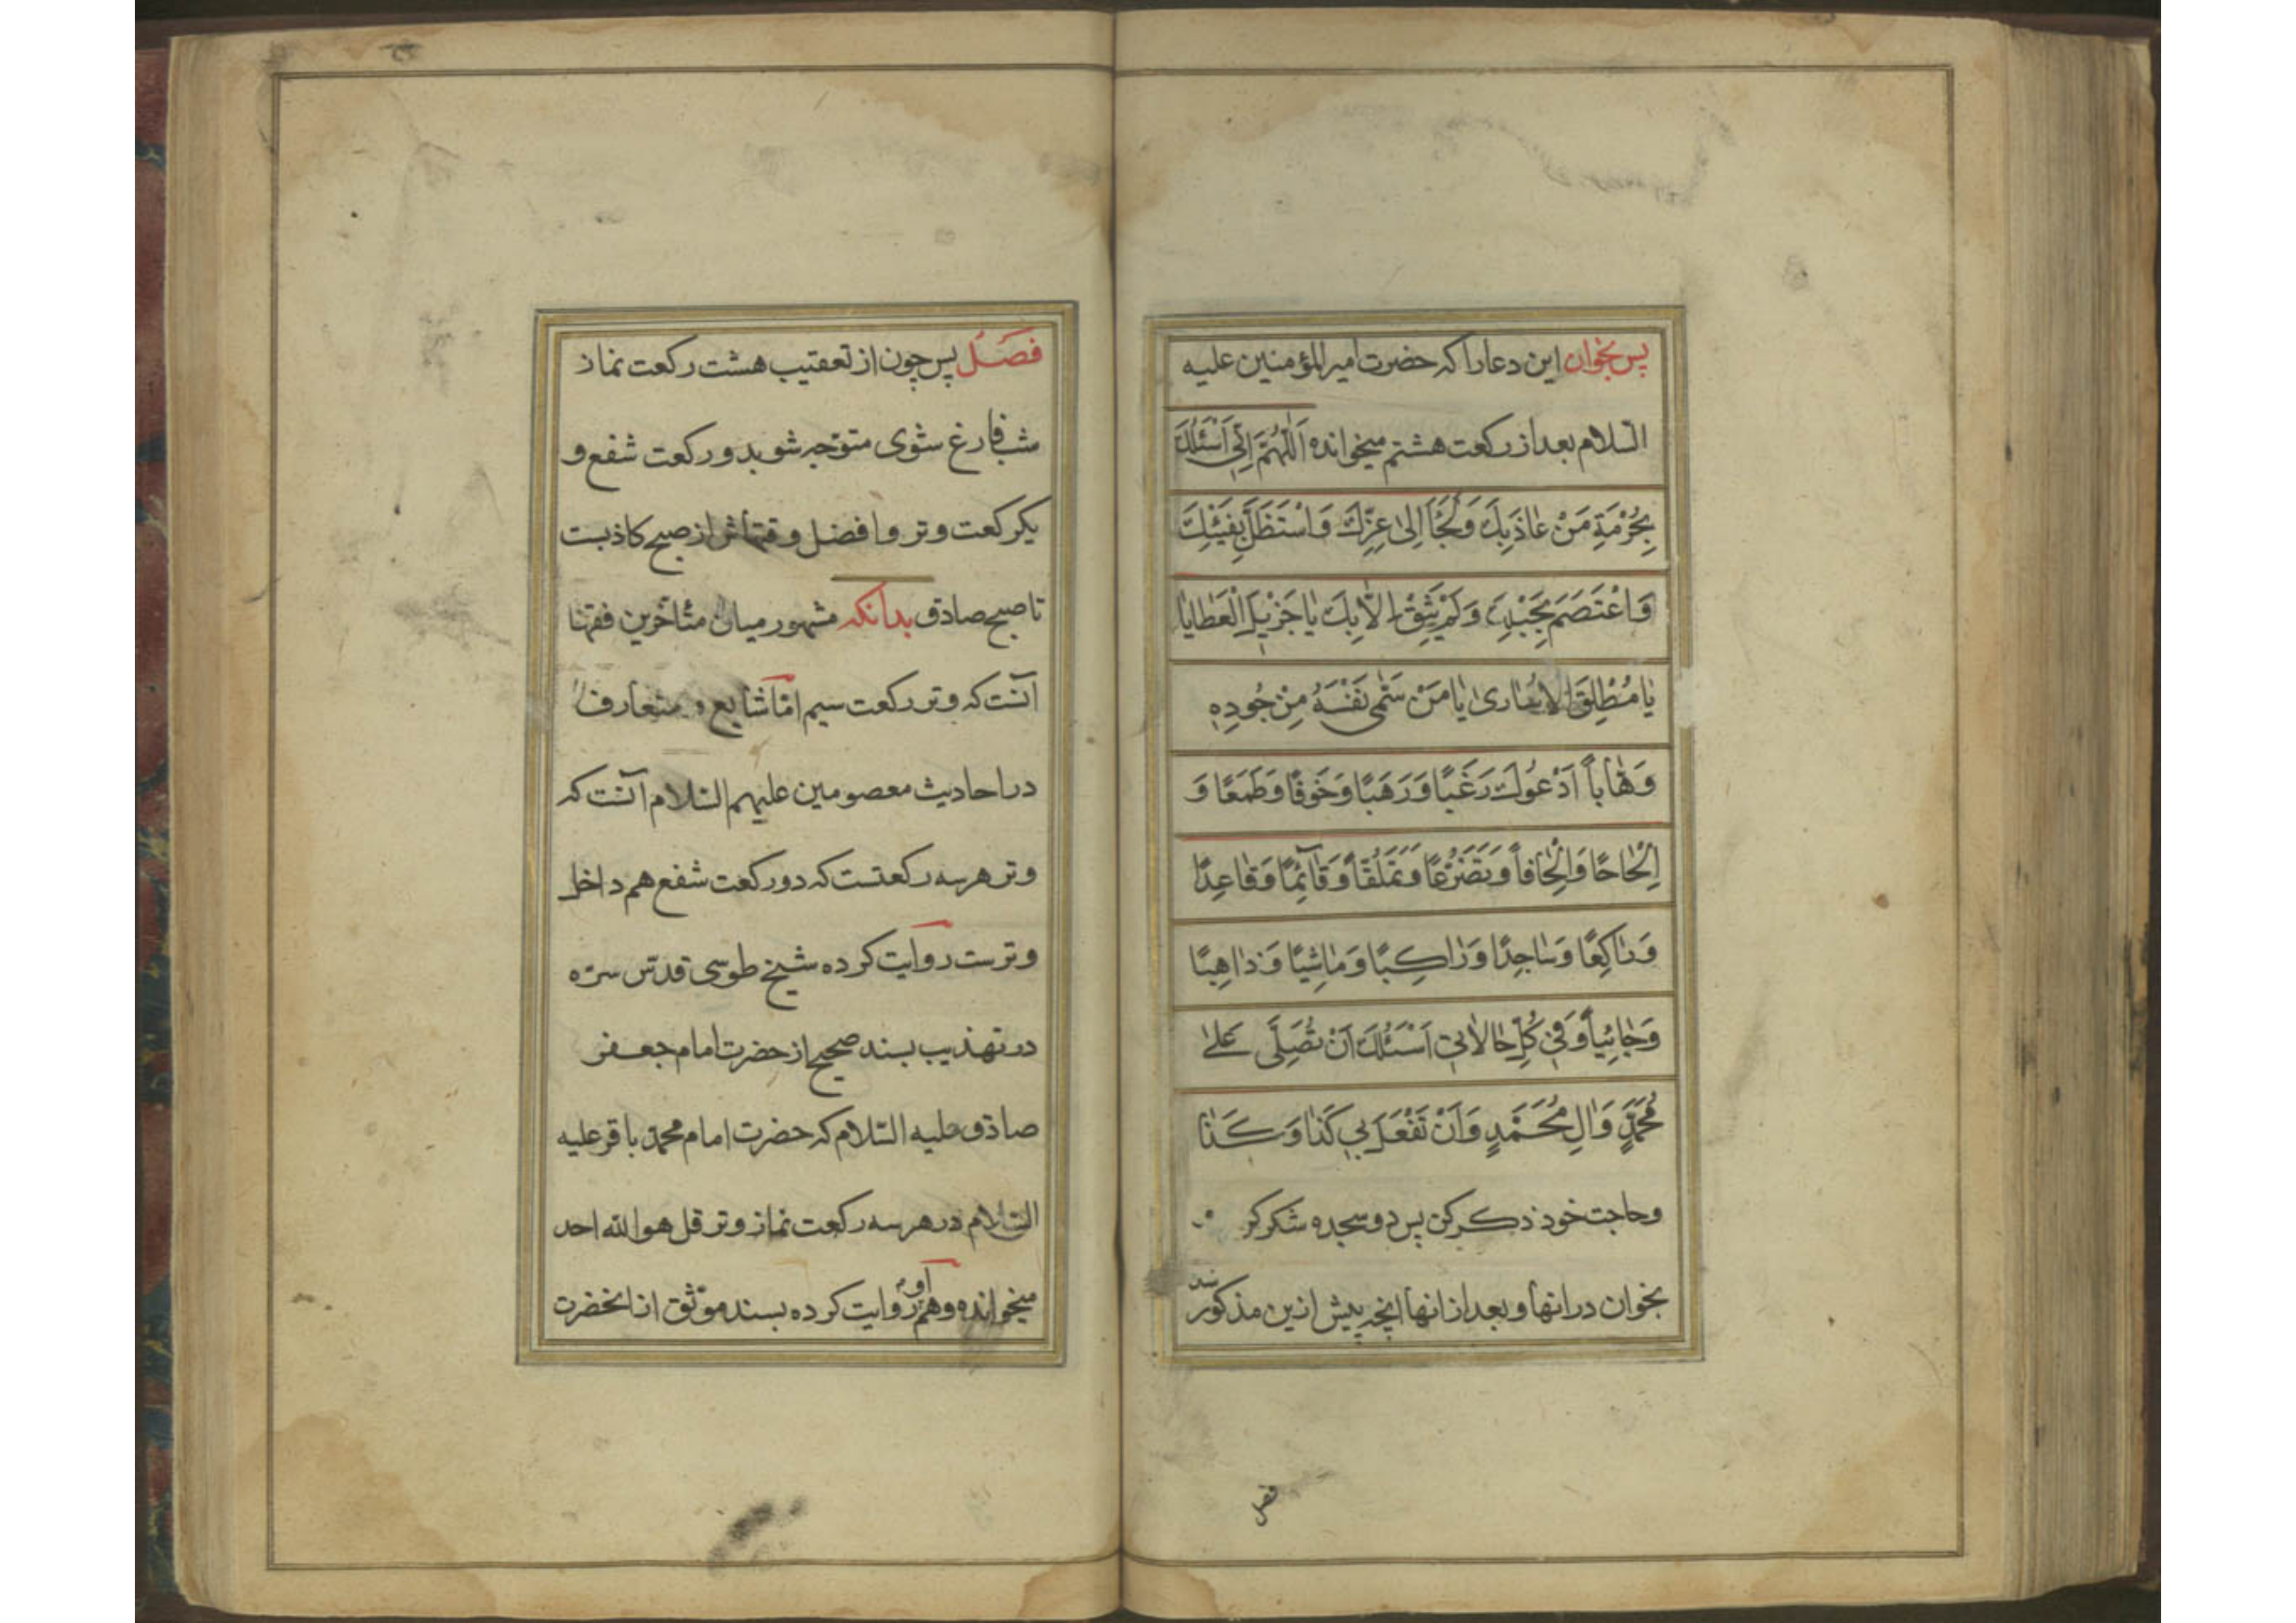 پس بخوان این دعا را که حضرت امیر المؤمنین علیه
السّلام بعد از رکعت هشتم میخوانده اَللّٰهُمَّ اِنّی اَسْئَلُكَ
بِحُرْمَةِ مَنْ عٰاذَ بِكَ وَلَجَأَ اِلیٰ عِزِّكَ وَاسْتَظَلَّ بِفَیْئِكَ
وَاعْتَصَمَ بِحَبْلِكَ وَلَمْ یَثِقْ اِلاّٰ بِكَ یٰا جَزیٖلَ الْعَطٰایٰا
یٰا مُطْلِقَ الاُسٰاریٰ یٰا مَنْ سَمّٰی نَفْسَهُ مِنْ جُودِهٖ
وَهّٰاباً اَدْعُوكَ رَغَبًا وَرَهَبًا وَخَوفًا وَطَمَعًا وَ
اِلْحٰاحًا وَاِلْحٰافاً وَتَضَرُّعًا وَتَمَلُّقاً وَقٰآئِمًا وَقٰاعِدًا
وَرٰاکِعًا وَسٰاجِدًا وَرٰاکِبًا وَمٰاشِیًا وَذٰاهِبًا
وَجٰائِیاً وَفیٖ کُلِّ حٰالاٰتیٖ اَسْئَلُكَ اَنْ تُصَلِّیَ عَلیٰ
مُحَمَّدٍ وَاٰلِ مُحَمَّدٍ وَاَنْ تَفْعَلَ بیٖ کَذٰا وَکَذٰا
وحاجت خود ذکر کن پس دو سجده شکر کن و
بخوان در انها و بعد از انها انچه پیش ازین مذکور شد
فصل
فَصَلٌ پس چون از تعقیب هشت رکعت نماز
شب فارغ شوی متوّجه شو بدو رکعت شفع و
یکرکعت وتر و افضل وقتهاش از صبح کاذبست
تا صبح صادق بدانکه مشهور میان متأخّرین فقها
آنست که وتر رکعت سیم امّا شایع و متعارف
در احادیث معصومین علیهم السّلام آنست که
وتر هر سه رکعتست که دو رکعت شفع هم داخل
وترست روایت کرده شیخ طوسی قدّس سرّه
در تهذیب بسند صحیح از حضرت امام جعفر
صادق علیه السّلام که حضرت امام محمّد باقر علیه
السّلام در هر سه رکعت نماز وتر قل هو الله احد
میخوانده و هم او روایت کرده بسند موّثق از انحضرت